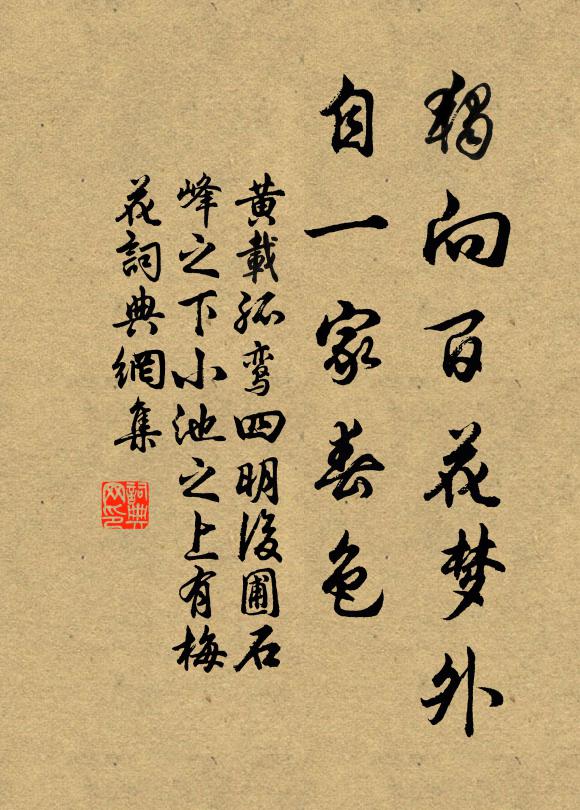 獨向百花梦外
自一家春色
黄載孤鸾四明後圃石
峰之下小池之上有梅
花詞典網集
詞典
网印